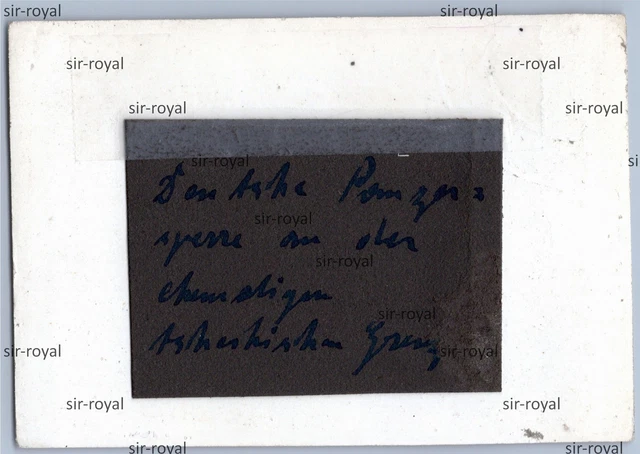 sir-royal sir-royal
sir-royal sir-royal
sir-royal sir-royal
sir-royal
Deutsche Panzer=
sir-royal
sperre an der
sir-royal
ehemaligen
sir-royal
tschechischen Grenz
sir-royal sir-royal
sir-royal sir-royal
sir-royal sir-royal